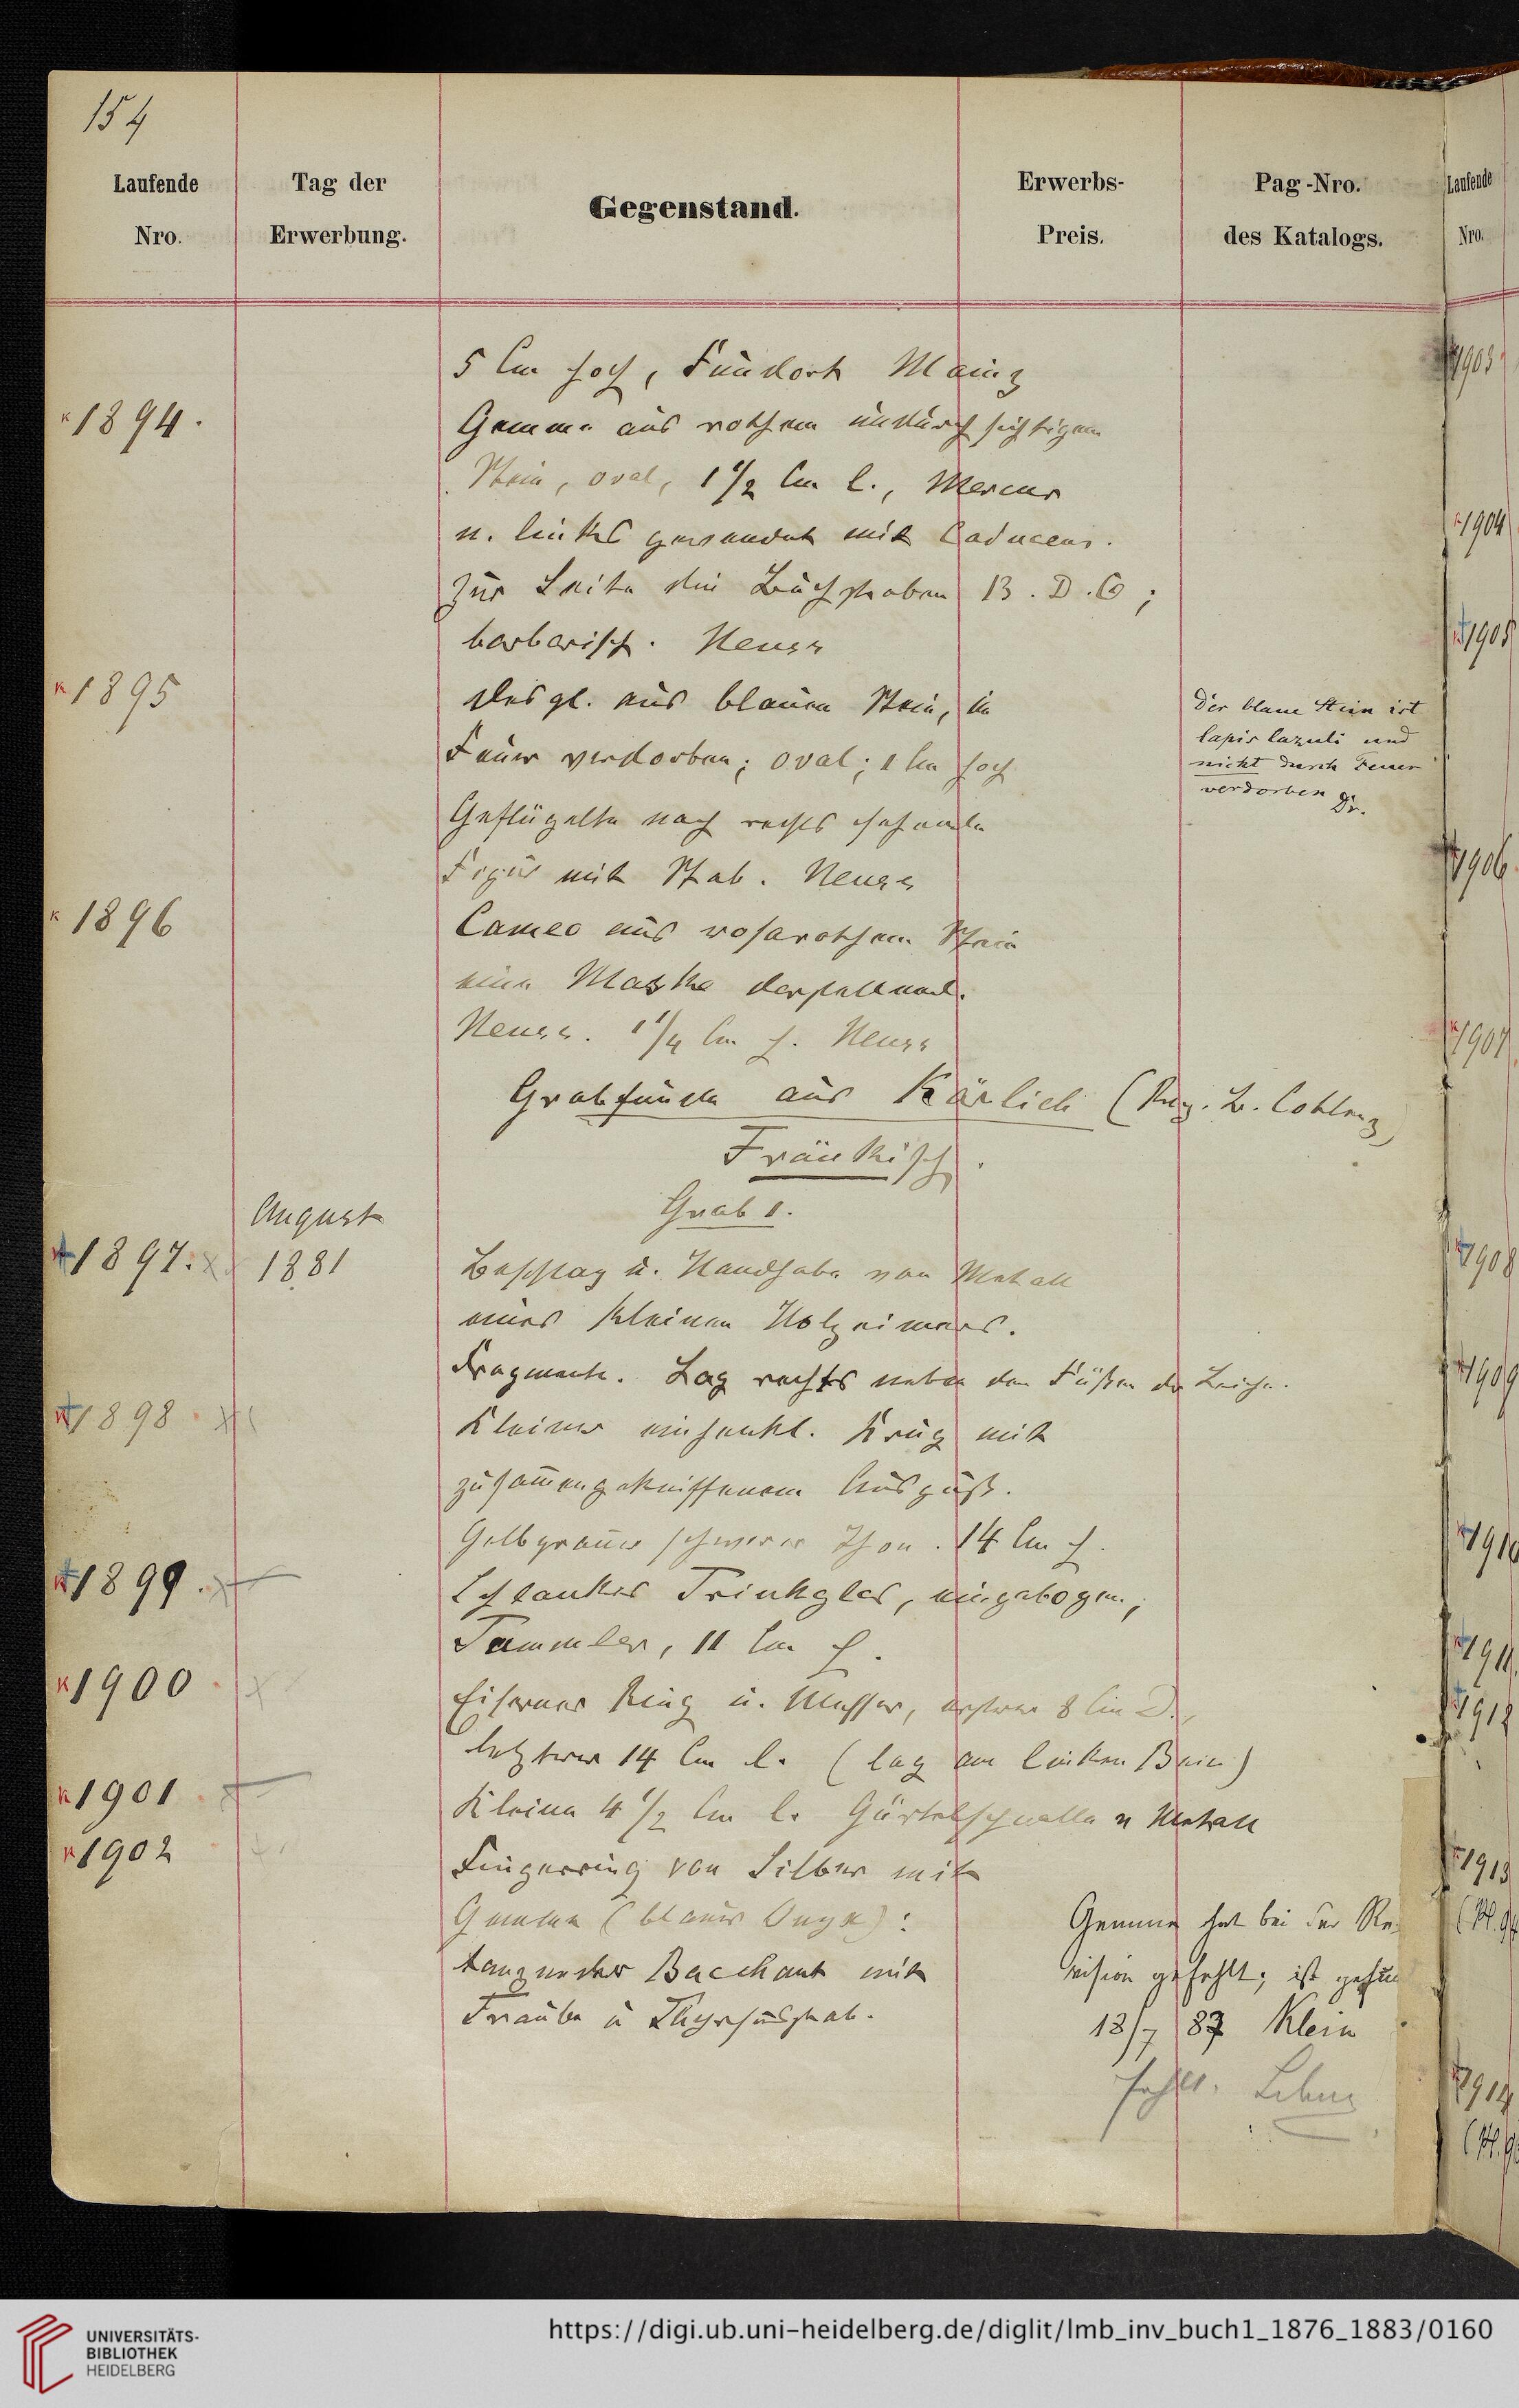 154
Laufende Nro.
Tag der Erwerbung.
Gegenstand.
Erwerbs-Preis.
Pag-Nro. des Katalogs.
5 Cm hoch, Fundort Mainz
1894.
Gemme aus rothem undurchsichtigem
Stein, oval, 1 1/2 Cm l., Mercur
n. links gewendet mit Caduceus.
Zur Seite die Buchstaben B. D. G;
barbarisch. Neuss
1895
Desgl. aus blauem Stein, im
Feuer verdorben; oval; 1 Cm hoch
Geflügelte nach rechts sehende
Figur mit Stab. Neuss
Der blaue Stein ist
lapis lazuli und
nicht durch Feuer
verdorben Dr.
1896
Cameo aus rosarothem Stein
eine Maske darstellend.
Neuss. 1 1/4 Cm h. Neuss
Grabfunde aus Kärlich (Reg. B. Coblenz)
Fränkisch.
Grab 1.
August
1897.
1881
Beschlag u. Handhabe von Metall
eines kleinen Holzeimers.
Fragmente. Lag rechts neben den Füßen der Leiche.
1898
Kleiner einhenkl. Krug mit
zusammengekniffenem Ausguß.
Gelbgrauer schwerer Thon. 14 Cm h.
1899.
Schlankes Trinkglas, eingebogen,
Tummler, 11 Cm h.
1900
Eiserner Ring u. Messer, ersterer 8 Cm D.,
letzterer 14 Cm l. (lag am linken Bein)
1901
Kleine 4 1/2 Cm l. Gürtelschnalle v Metall
1902
Fingerring von Silber mit
Gemme (blauer Onyx):
tanzender Bacchant mit
Traube u Thyrsusstab.
Gemme hat bei der Re-
vision gefehlt; ist gefun
18/7 87 Klein
fehlt. Lehner
Laufende
Nro.
1903
1904
1905
1906
1907
1908
1909
1910
1911
1912
1913
1914
UNIVERSITÄTS-
BIBLIOTHEK
HEIDELBERG
https://digi.ub.uni-heidelberg.de/diglit/lmb_inv_buch1_1876_1883/0160